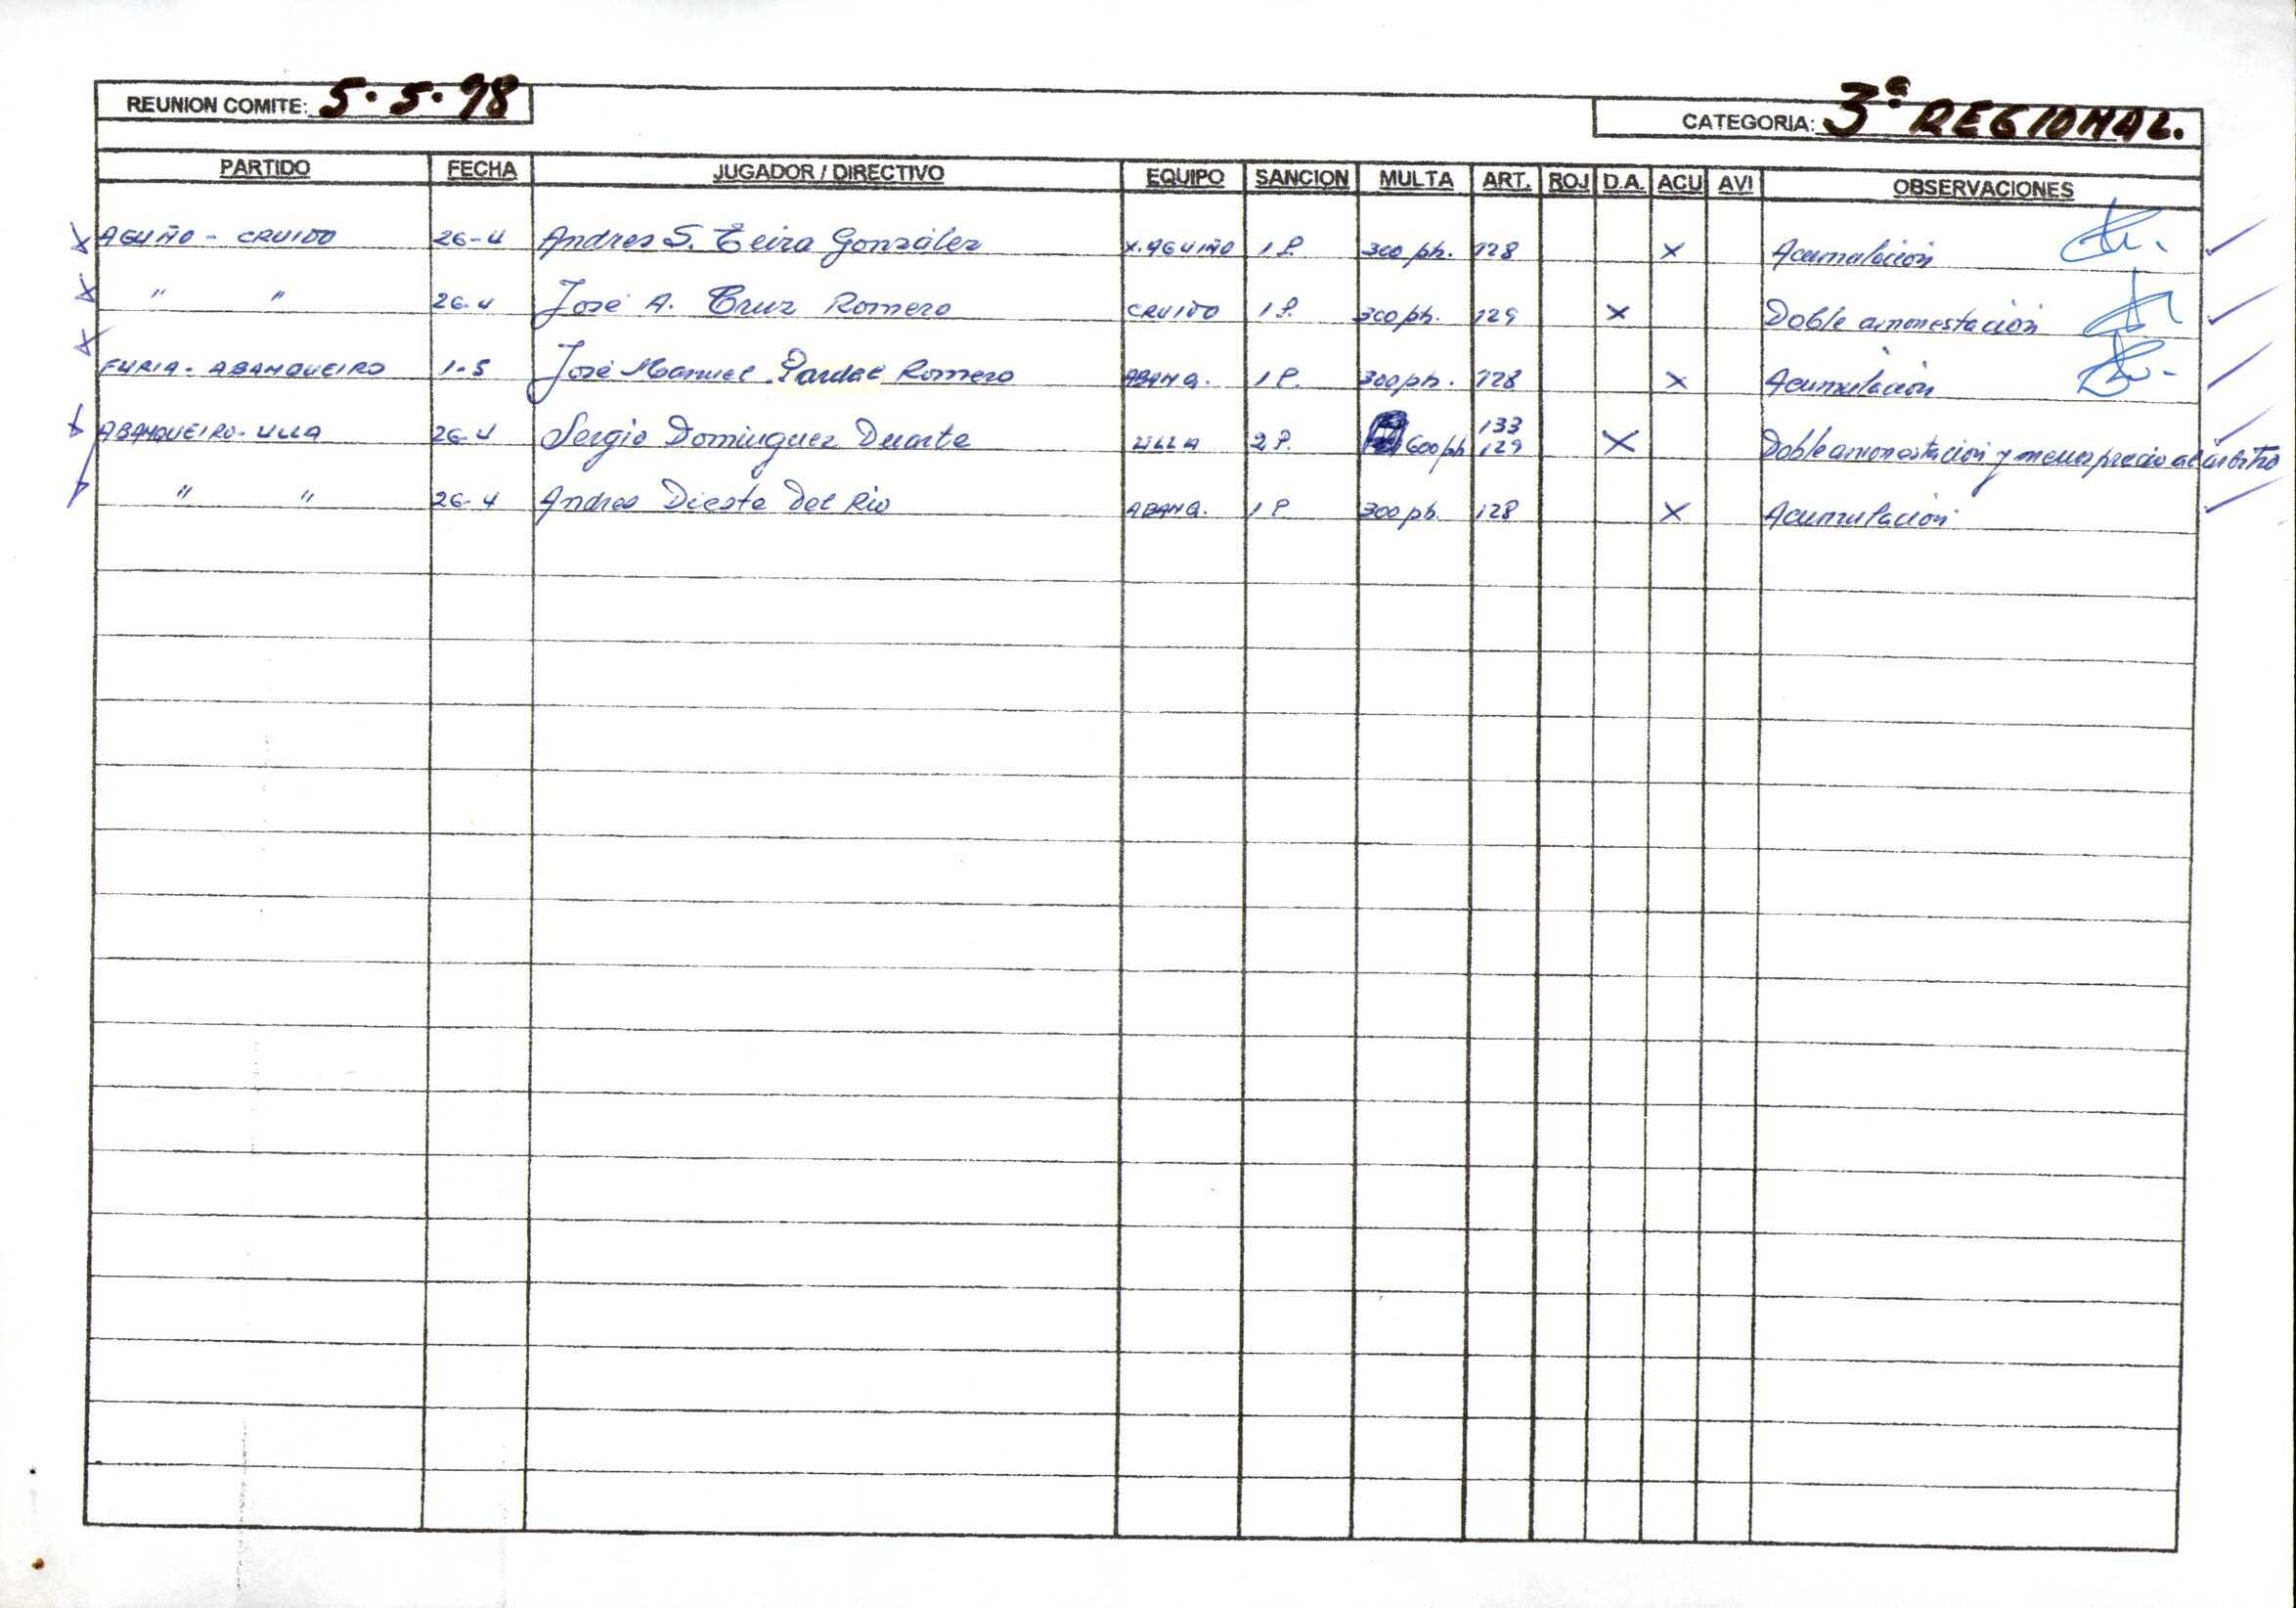 REUNION COMITE: 5-5-98 CATEGORIA: 3ª REGIONAL.
PARTIDO FECHA JUGADOR / DIRECTIVO EQUIPO SANCION MULTA ART. ROJ D.A. ACU AVI OBSERVACIONES
AGUIÑO - CRUIDO 26-4 Andres S. Teira González X. AGUIÑO 1 P. 300 pts. 128 X Acumulación
" " 26-4 José A. Cruz Romero CRUIDO 1 P. 300 pts. 129 X Doble amonestación
FURIA - ABANQUEIRO 1-5 José Manuel Pardal Romero ABANQ. 1 P. 300 pts. 128 X Acumulación
ABANQUEIRO - ULLA 26-4 Sergio Dominguez Duarte ULLA 2 P. 600 pts 133 129 X Doble amonestación y menosprecio al árbitro
" " 26-4 Andres Dieste Del Rio ABANQ. 1 P 300 pts. 128 X Acumulación